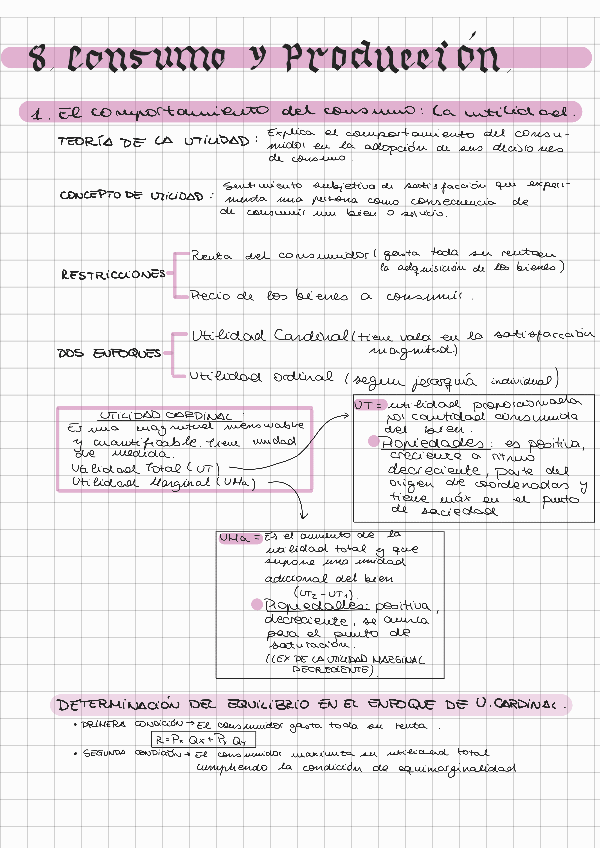 8. Consumo y Producción.
1. El comportamiento del consumo: la utilidad.
TEORÍA DE LA UTILIDAD: Explica el comportamiento del consu-
midor en la adopción de sus decisiones
de consumo.
CONCEPTO DE UTILIDAD: Sentimiento subjetivo de satisfacción que experi-
menta una persona como consecuencia de
de consumir un bien o servicio.
RESTRICCIONES
Renta del consumidor (gasta toda su renta en
la adquisición de los bienes)
Precio de los bienes a consumir.
DOS ENFOQUES
Utilidad Cardinal (tiene valor en la satisfacción
magnitud)
Utilidad ordinal (segun jerarquía individual)
UTILIDAD CARDINAL:
Es una magnitud mensurable
y cuantificable. tiene unidad
de medida.
Utilidad Total (UT)
Utilidad Marginal (UMa)
UT = utilidad proporcionada
por cantidad consumida
del bien.
Propiedades: es positiva,
creciente a ritmo
decreciente, parte del
origen de coordenadas y
tiene máx en el punto
de saciedad
UMa = Es el aumento de la
utilidad total y que
supone una unidad
adicional del bien
(UT2 - UT1)
Propiedades: positiva,
decreciente, se anula
para el punto de
saturación.
((EX DE LA UTILIDAD MARGINAL
DECRECIENTE)
DETERMINACIÓN DEL EQUILIBRIO EN EL ENFOQUE DE U. CARDINAL.
• PRIMERA CONDICIÓN → El consumidor gasta toda su renta.
R = Px Qx + Py Qy
• SEGUNDA CONDICIÓN → El consumidor maximiza su utilidad total
cumpliendo la condición de equimarginalidad